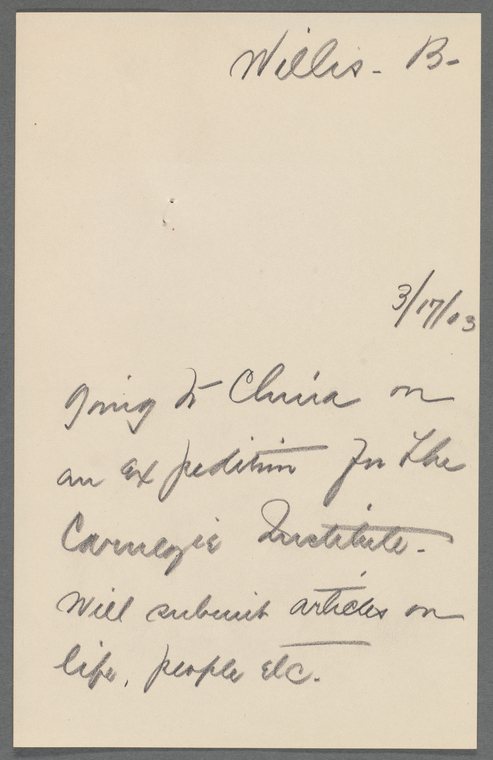 Willis - B -
3/17/03
going to China on
an expedition for the
Carnegie Institute -
Will submit articles on
life, people etc.